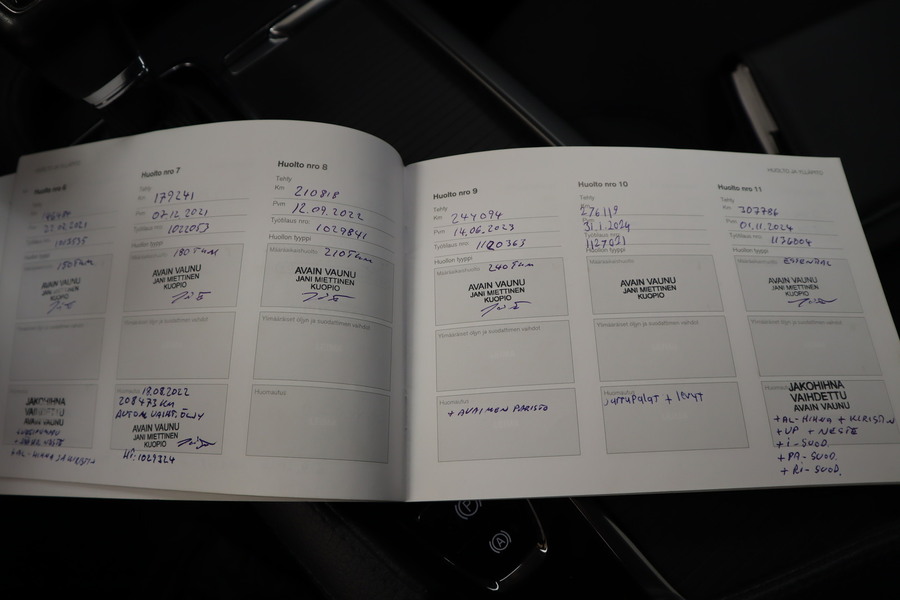 Huolto nro 6
150 Tkm
AVAIN VAUNU
JANI MIETTINEN
KUOPIO
JAKOHIHNA
VAIHDETTU
AVAIN VAUNU
Huolto nro 7
Tehty
Km 179241
Pvm 07.12.2021
Työtilaus nro: 1022053
Huollon tyyppi
Määräaikaishuolto 180 Tkm
AVAIN VAUNU
JANI MIETTINEN
KUOPIO
Ylimääräiset öljyn ja suodattimen vaihdot
Huomautus 19.08.2022
208473 KM
AUTOM.VAIHT.ÖLJY
AVAIN VAUNU
JANI MIETTINEN
KUOPIO
Huolto nro 8
Tehty
Km 210818
Pvm 12.09.2022
Työtilaus nro: 1029841
Huollon tyyppi
Määräaikaishuolto 210 Tkm
AVAIN VAUNU
JANI MIETTINEN
KUOPIO
Ylimääräiset öljyn ja suodattimen vaihdot
Huomautus
HUOLTO JA YLLÄPITO
Huolto nro 9
Tehty
Km 244094
Pvm 14.06.2023
Työtilaus nro: 1120363
Huollon tyyppi
Määräaikaishuolto 240 Tkm
AVAIN VAUNU
JANI MIETTINEN
KUOPIO
Ylimääräiset öljyn ja suodattimen vaihdot
Huomautus
+ AVAIMEN PARISTO
Huolto nro 10
Tehty
Km 276119
Pvm 31.1.2024
Työtilaus nro:
Huollon tyyppi
Määräaikaishuolto
AVAIN VAUNU
JANI MIETTINEN
KUOPIO
Ylimääräiset öljyn ja suodattimen vaihdot
Huomautus
Jarrupalat + levyt
Huolto nro 11
Tehty
Km 307786
Pvm 01.11.2024
Työtilaus nro: 1176804
Huollon tyyppi
Määräaikaishuolto ESSENTIAL
AVAIN VAUNU
JANI MIETTINEN
KUOPIO
Ylimääräiset öljyn ja suodattimen vaihdot
JAKOHIHNA
VAIHDETTU
AVAIN VAUNU
+AL-HIHNA + KIRISTIN
+VP + NESTE
+i-SUOD.
+PA-SUOD.
+Ri-SUOD.
P
A